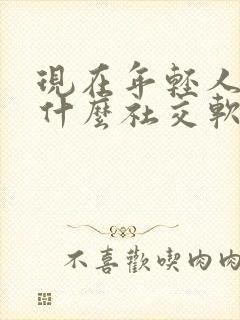 現在年輕人
什麼社交軟
不喜歡喫肉肉